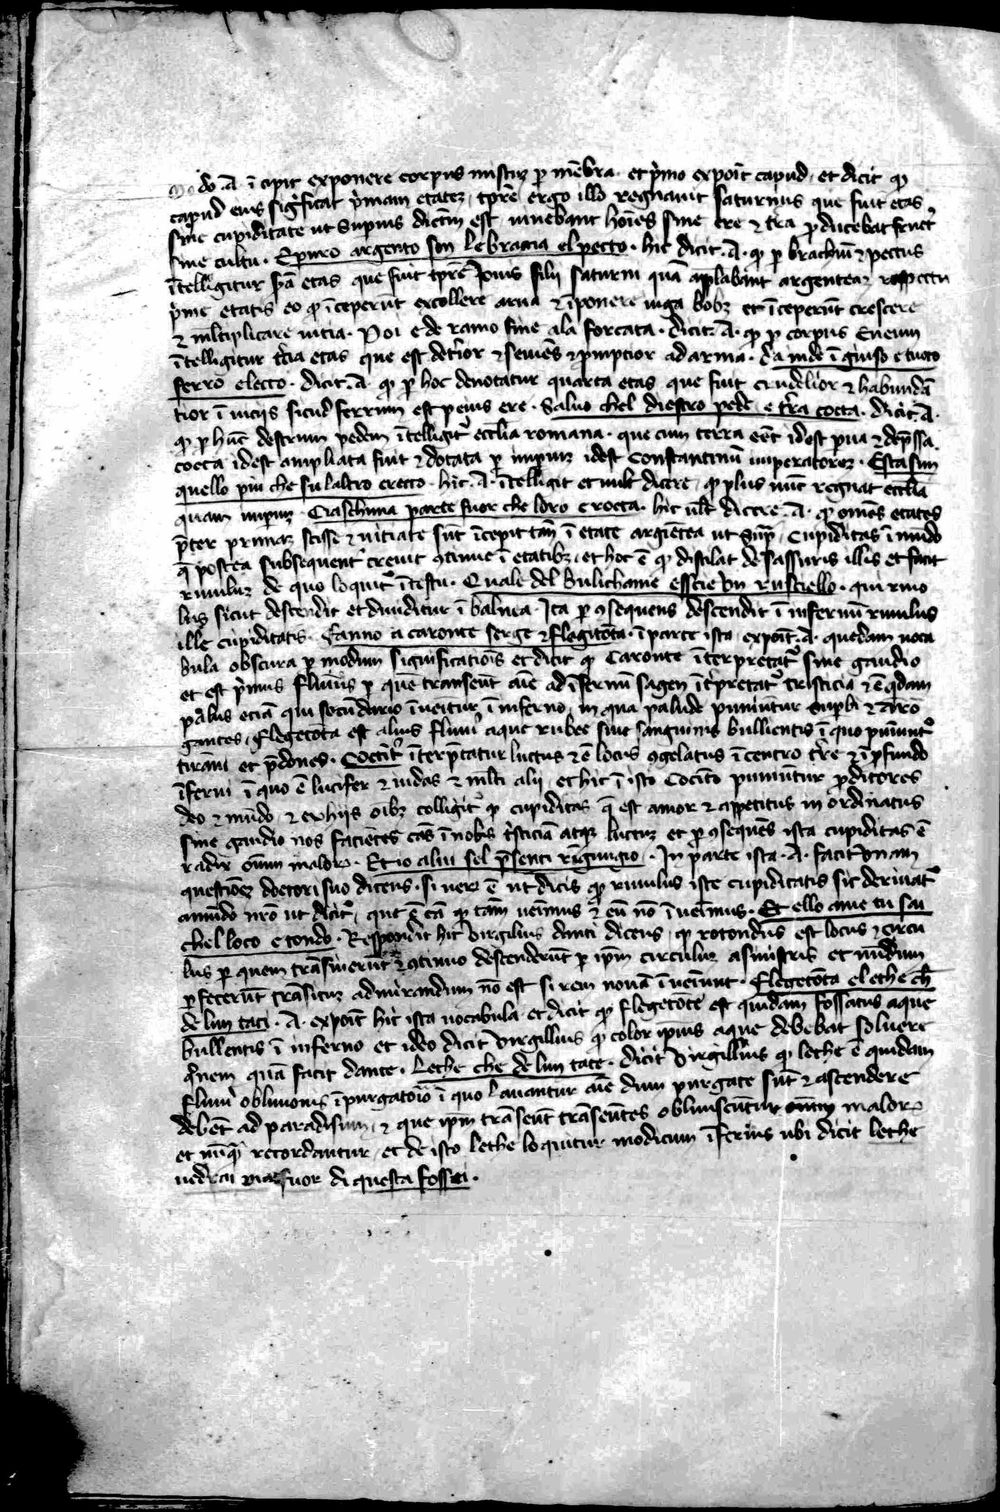 Modo .A. ĩcipit exponere corpus mistuʒ p mẽbra. et pͥmo expoĩt capud. et dicit qꝫ
capud eius sigͥficat pͥmam etateʒ, tpr̃e ergo illo regnauit saturnus que fuit etas
sine cupiditate ut supius dictũ est uiuebant hoĩes sine ere ⁊ tr̃a pducebat fruct9
sine cultu. E puro argento son le bracia el pecto. hic dicit .A. qꝫ p brachiũ ⁊ pectus
ĩtelligitur s̃a etas que fuit tpr̃e Iouis filij saturni qua apлabant argenteaʒ respectu
pͥme etatis eo qꝫ ĩceperũt excollere arua ⁊ ĩponere iuga bobʒ et ĩceperũt crescere
⁊ multiplicare uitia. Poi e de ramo fine ala forcata. dicit .A. qꝫ p corpus Eneum
ĩtelligitur t̃cia etas que est det̃ior ⁊ seuiẽs ⁊ pmptior ad arma. da inde ĩ giuso e tuto
ferro electo. dicit .A. qꝫ p hoc denotatur quarta etas que fuit crudelior ⁊ habundã
tior ĩ uiciis sicud ferrum est peius ere. Saluo chel diestro pede e tr̃a cocta. dicit .A.
qꝫ p hũc destrum pedem ĩtelligit̃ eccl̃ia romana. que cum terra eẽt idest pua ⁊ dep̃ssa
cocta idest ampliata fuit ⁊ dotata p impiuʒ idest Constantinũ imperatoreʒ. E sta sun
quello piu che su laltro erecto. hic .A. ĩtelligit et uult dicere, qꝫ plus nũc regnat eccl̃ia
quam impiuʒ. Ciaschuna parte fuor che loro e rocta. hic uult dicere .A. qꝫ om̃es etates
p̃ter primaʒ scisse ⁊ uitiate sũt ĩcepit tam̃ ĩ etate argẽtea ut sup̃. Cupiditas ĩ mũdo
q̃ postea subsequent̃ creuit 9tinue ĩ etatibʒ, et hoc ẽ qꝫ distilat de fassuris illis et facit
riuuluʒ de quo loquit̃ ĩ testu. Quale del bulichame esscie un rusciello. qui riuo
lus sicut descendit et diuiditur ĩ balnea. Ita p 9sequens descendit ĩ infernũ riuulus
ille cupiditatis. Fanno a caronte serge ⁊ flegitõta. ĩ parte ista expoĩt .A. quedam uoca
bula obscura p modum significatiõis et dicit qꝫ Caronte ĩterpretat̃ sine gaudio
et est pͥmus fluuius p quẽ transeũt aĩe ad ĩfernũ sagen ĩt̃pretat̃ tristicia ⁊ ẽ qdam
palus eciã qui secũdario ĩueitur, ĩ inferno, in qua palude puniuntur supbi ⁊ arro
gantes, flegetõta est alius fluuĩ aque rubee siue sanguinis bullientis ĩ quo puniũt̃
tirani et p̃dones. Cocit̃ ĩterp̃tatur luctus ⁊ ẽ locus 9gelatus ĩ centro tr̃e ⁊ ĩ pfundo
ĩferni ĩ quo ẽ lucifer ⁊ iudas ⁊ ml̃ti alij et hic ĩ isto Cocito puniuntur pditores
deo ⁊ mũdo, ⁊ ex hijs oĩbʒ colligit̃ qꝫ cupiditas q̃ est amor ⁊ appetitus in ordinatus
sine gaudio nos faciẽtes eãs ĩ nobis tͥsticiam atqʒ luctuʒ et p 9sequẽs ista cupiditas ẽ
radix om̃um maloꝝ. Et io alui sel p̃senti rigungio. In parte ista .A. facit unam
questioneʒ doctori suo dicens. si uerũ ẽ ut dicis qꝫ riuulus iste cupiditatis sic deriuat̃
a mũdo nr̃o ut dicit̃, que ẽ cã qꝫ tãm uenimus ⁊ eũ nõ ĩuenimus. Et ello a me tu sai
chel loco e tondo. Respondet hic Virgilius danti dicens, qꝫ rotondus est locus ⁊ circu
lus p quem transiuerũt ⁊ 9tinuo descenderũt p ipm̃ circuluʒ a sinistris et nũdum
pfecerũt trãsituʒ admirandum nõ est si rem nouã ĩueniunt. Flegetõta e lethe ch̃
de lun taci. A. expoĩt hic ista uocabula et dicit qꝫ flegetote est quidam fossatus aque
bullentis ĩ inferno et ideo dicit Virgillius qꝫ color ipius aque debebat soluere
qͥnem quã facit dante. Lethe che de lun tace. dicit Virgillius qꝫ lethe ẽ quidam
fluuĩ obliuionis ĩ purgatoĩo ĩ quo lauantur aĩe dum purgate sũt ⁊ ascendere
debẽt ad paradisum, ⁊ que ipm̃ trãseũt trãseũtes obliuiscuntur om̃iũ maloꝝ
et nũq̃ recordantur, et de isto lethe loquitur modicum ĩferius ubi dicit lethe
uedrai ma fuor di questa fossa.